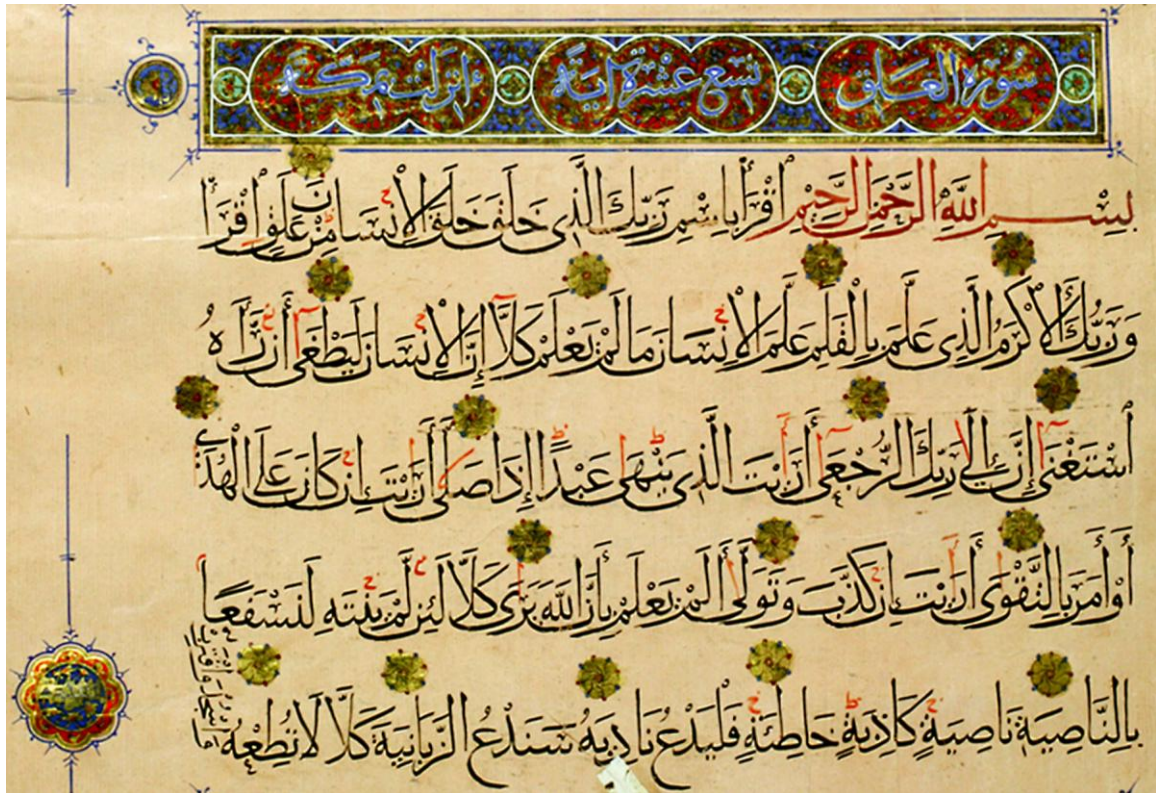 سورة العلق تسع عشرة اية انزلت بمكة
بِسْمِ اللَّهِ الرَّحْمَنِ الرَّحِيمِ اقْرَأْ بِاسْمِ رَبِّكَ الَّذِي خَلَقَ خَلَقَ الْإِنْسَانَ مِنْ عَلَقٍ اقْرَأْ
وَرَبُّكَ الْأَكْرَمُ الَّذِي عَلَّمَ بِالْقَلَمِ عَلَّمَ الْإِنْسَانَ مَا لَمْ يَعْلَمْ كَلَّا إِنَّ الْإِنْسَانَ لَيَطْغَى أَنْ رَآهُ
اسْتَغْنَى إِنَّ إِلَى رَبِّكَ الرُّجْعَى أَرَأَيْتَ الَّذِي يَنْهَى عَبْدًا إِذَا صَلَّى أَرَأَيْتَ إِنْ كَانَ عَلَى الْهُدَى
أَوْ أَمَرَ بِالتَّقْوَى أَرَأَيْتَ إِنْ كَذَّبَ وَتَوَلَّى أَلَمْ يَعْلَمْ بِأَنَّ اللَّهَ يَرَى كَلَّا لَئِنْ لَمْ يَنْتَهِ لَنَسْفَعًا
بِالنَّاصِيَةِ نَاصِيَةٍ كَاذِبَةٍ خَاطِئَةٍ فَلْيَدْعُ نَادِيَهُ سَنَدْعُ الزَّبَانِيَةَ كَلَّا لَا تُطِعْهُ
وَاسْجُدْ وَاقْتَرِبْ